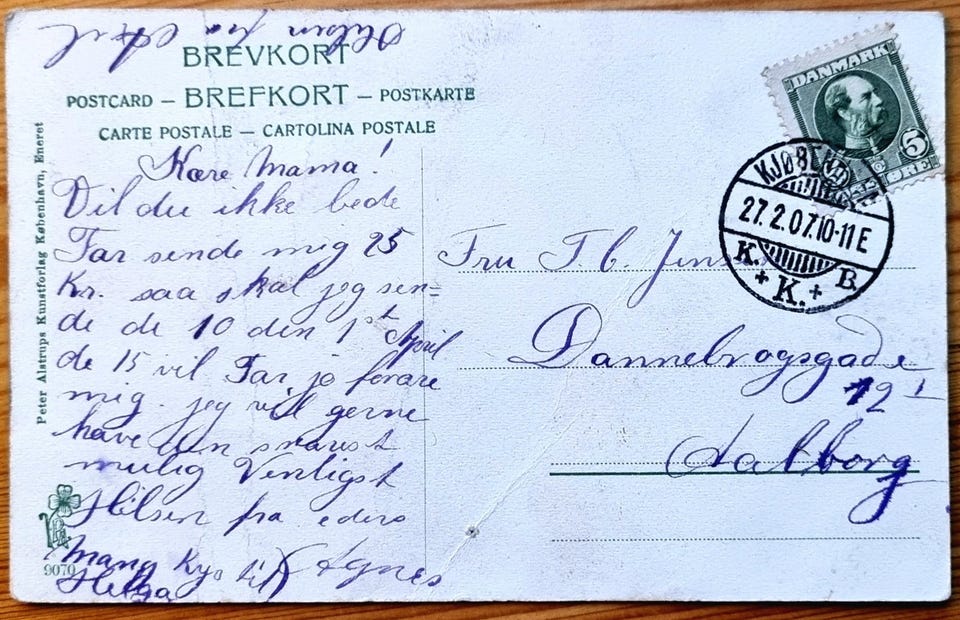 Hilsen fra Axel
BREVKORT
POSTCARD – BREFKORT – POSTKARTE
CARTE POSTALE – CARTOLINA POSTALE
Peter Alstrups Kunstforlag København, Eneret
Kære Mama!
Vil du ikke bede
Far sende mig 25
Kr. saa skal jeg sen=
de de 10 den 1st April
de 15 vil Far jo forære
mig. jeg vil gerne
have den snarest
mulig Venligst
Hilsen fra eders
Agnes
Mang Kys til
Helga
9070
DANMARK
5
ØRE
KJØBENH
27.2.07.10-11 E
K. K. B.
Fru T. C. Jen
Dannebrogsgade
12 I
Aalborg